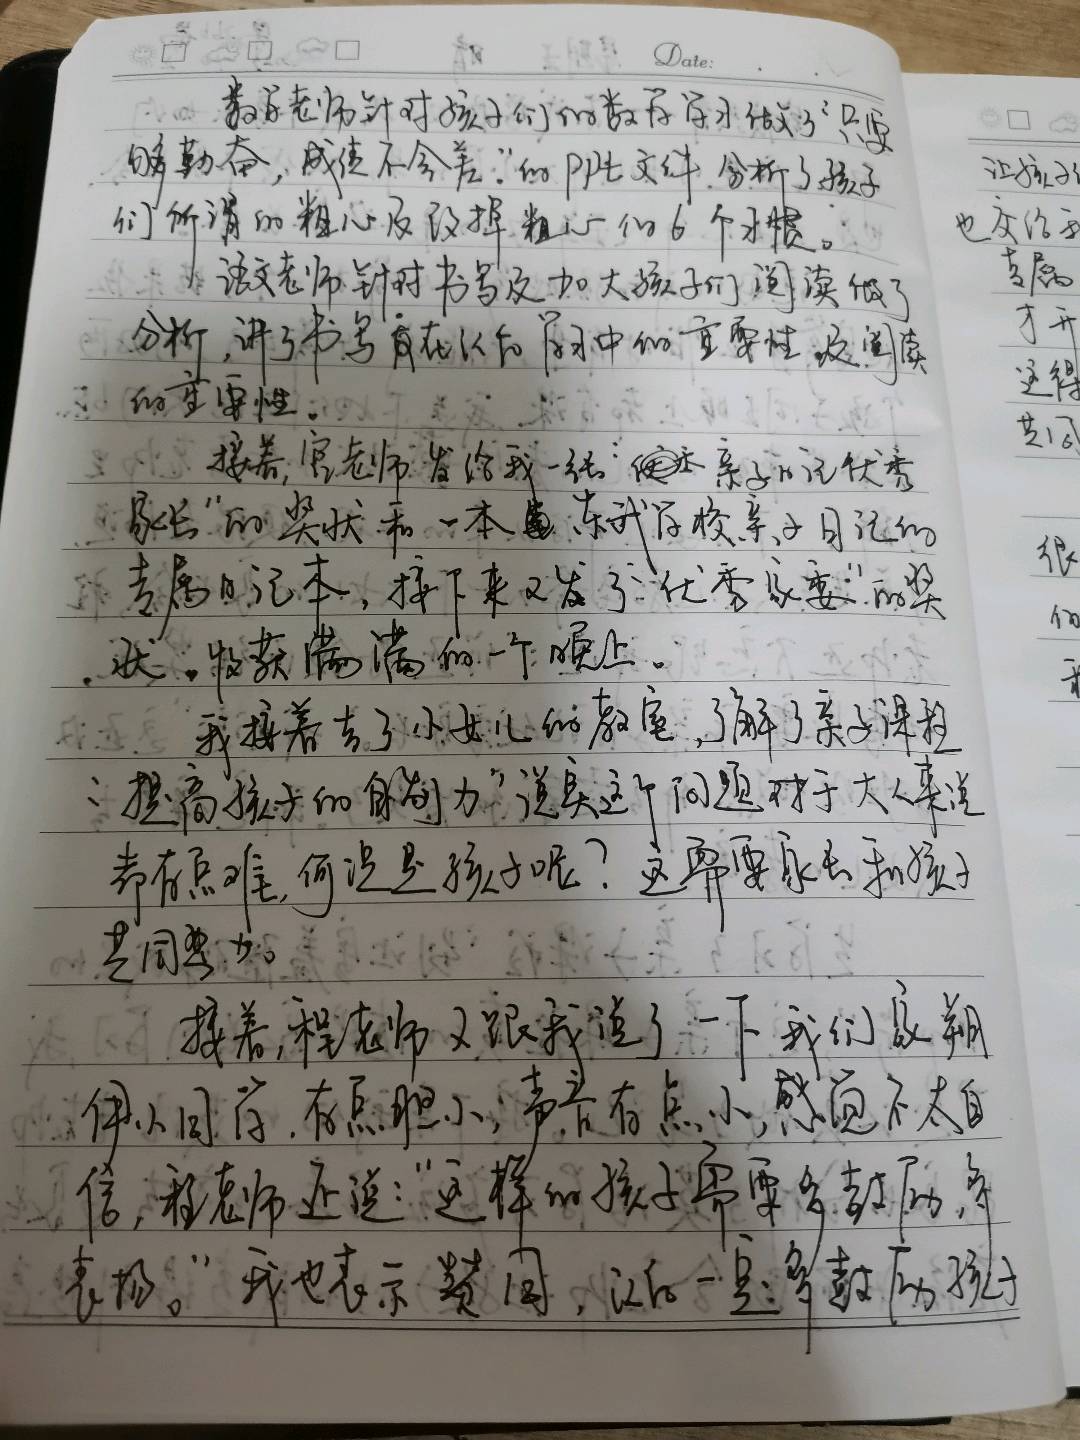 Date:
数学老师针对孩子们的数学学习做了“只要
够勤奋，成绩不会差。”的PPt文件.分析了孩子
们所谓的粗心及改掉粗心的6个习惯。
语文老师针对书写及加大孩子们阅读做了
分析，讲了书写在以后学习中的重要性及阅读
的重要性。
接着，宫老师发给我一张“亲子日记优秀
家长”的奖状和一本东我学校亲子日记的
专属日记本，接下来又发了“优秀家委”的奖
状。收获满满的一个晚上。
我接着去了小女儿的教室，了解了亲子课程
“提高孩子的自制力”说实这个问题对于大人来说
都有点难，何况是孩子呢？这需要家长和孩子
共同努力。
接着，程老师又跟我说了一下我们家朔
伊小同学.有点胆小，声音有点小，感觉不太自
信，程老师还说：“这样的孩子需要多鼓励，多
表扬。”我也表示赞同，以后一定多鼓励孩子
让孩子
也交给
专属
才开
这得
共同
很
的